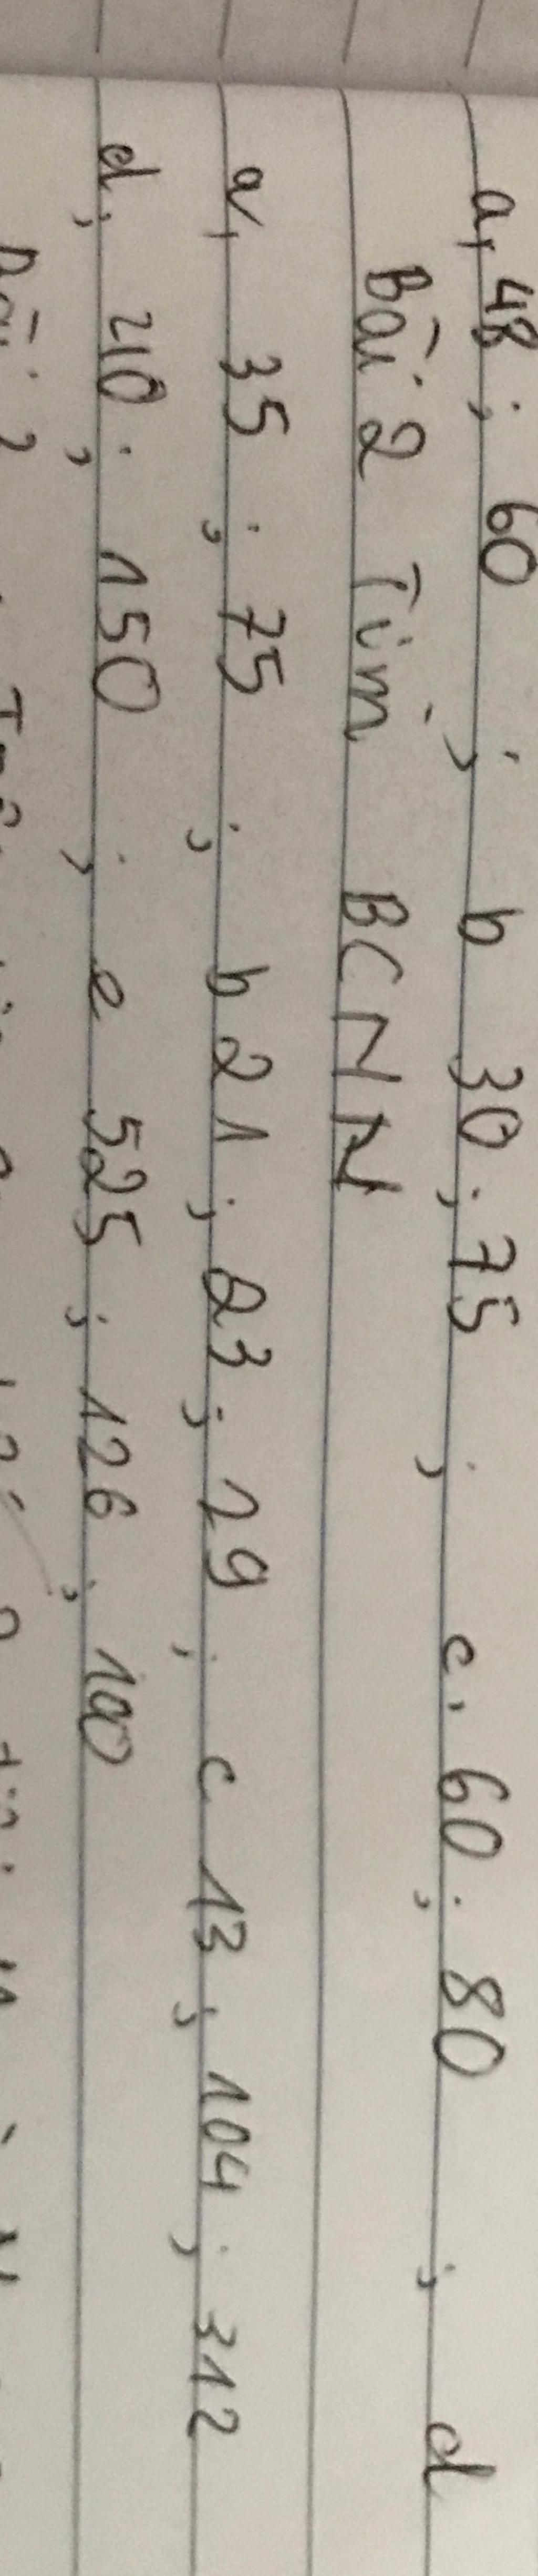 a, 48 ; 60 ; b 30 ; 75 ; c, 60 ; 80 ; d
Bài 2 Tìm BCNN
a, 35 ; 75 ; b 21 ; 23 ; 29 ; c 13 ; 104 ; 312
d, 210 ; 150 ; e 525 ; 126 ; 100